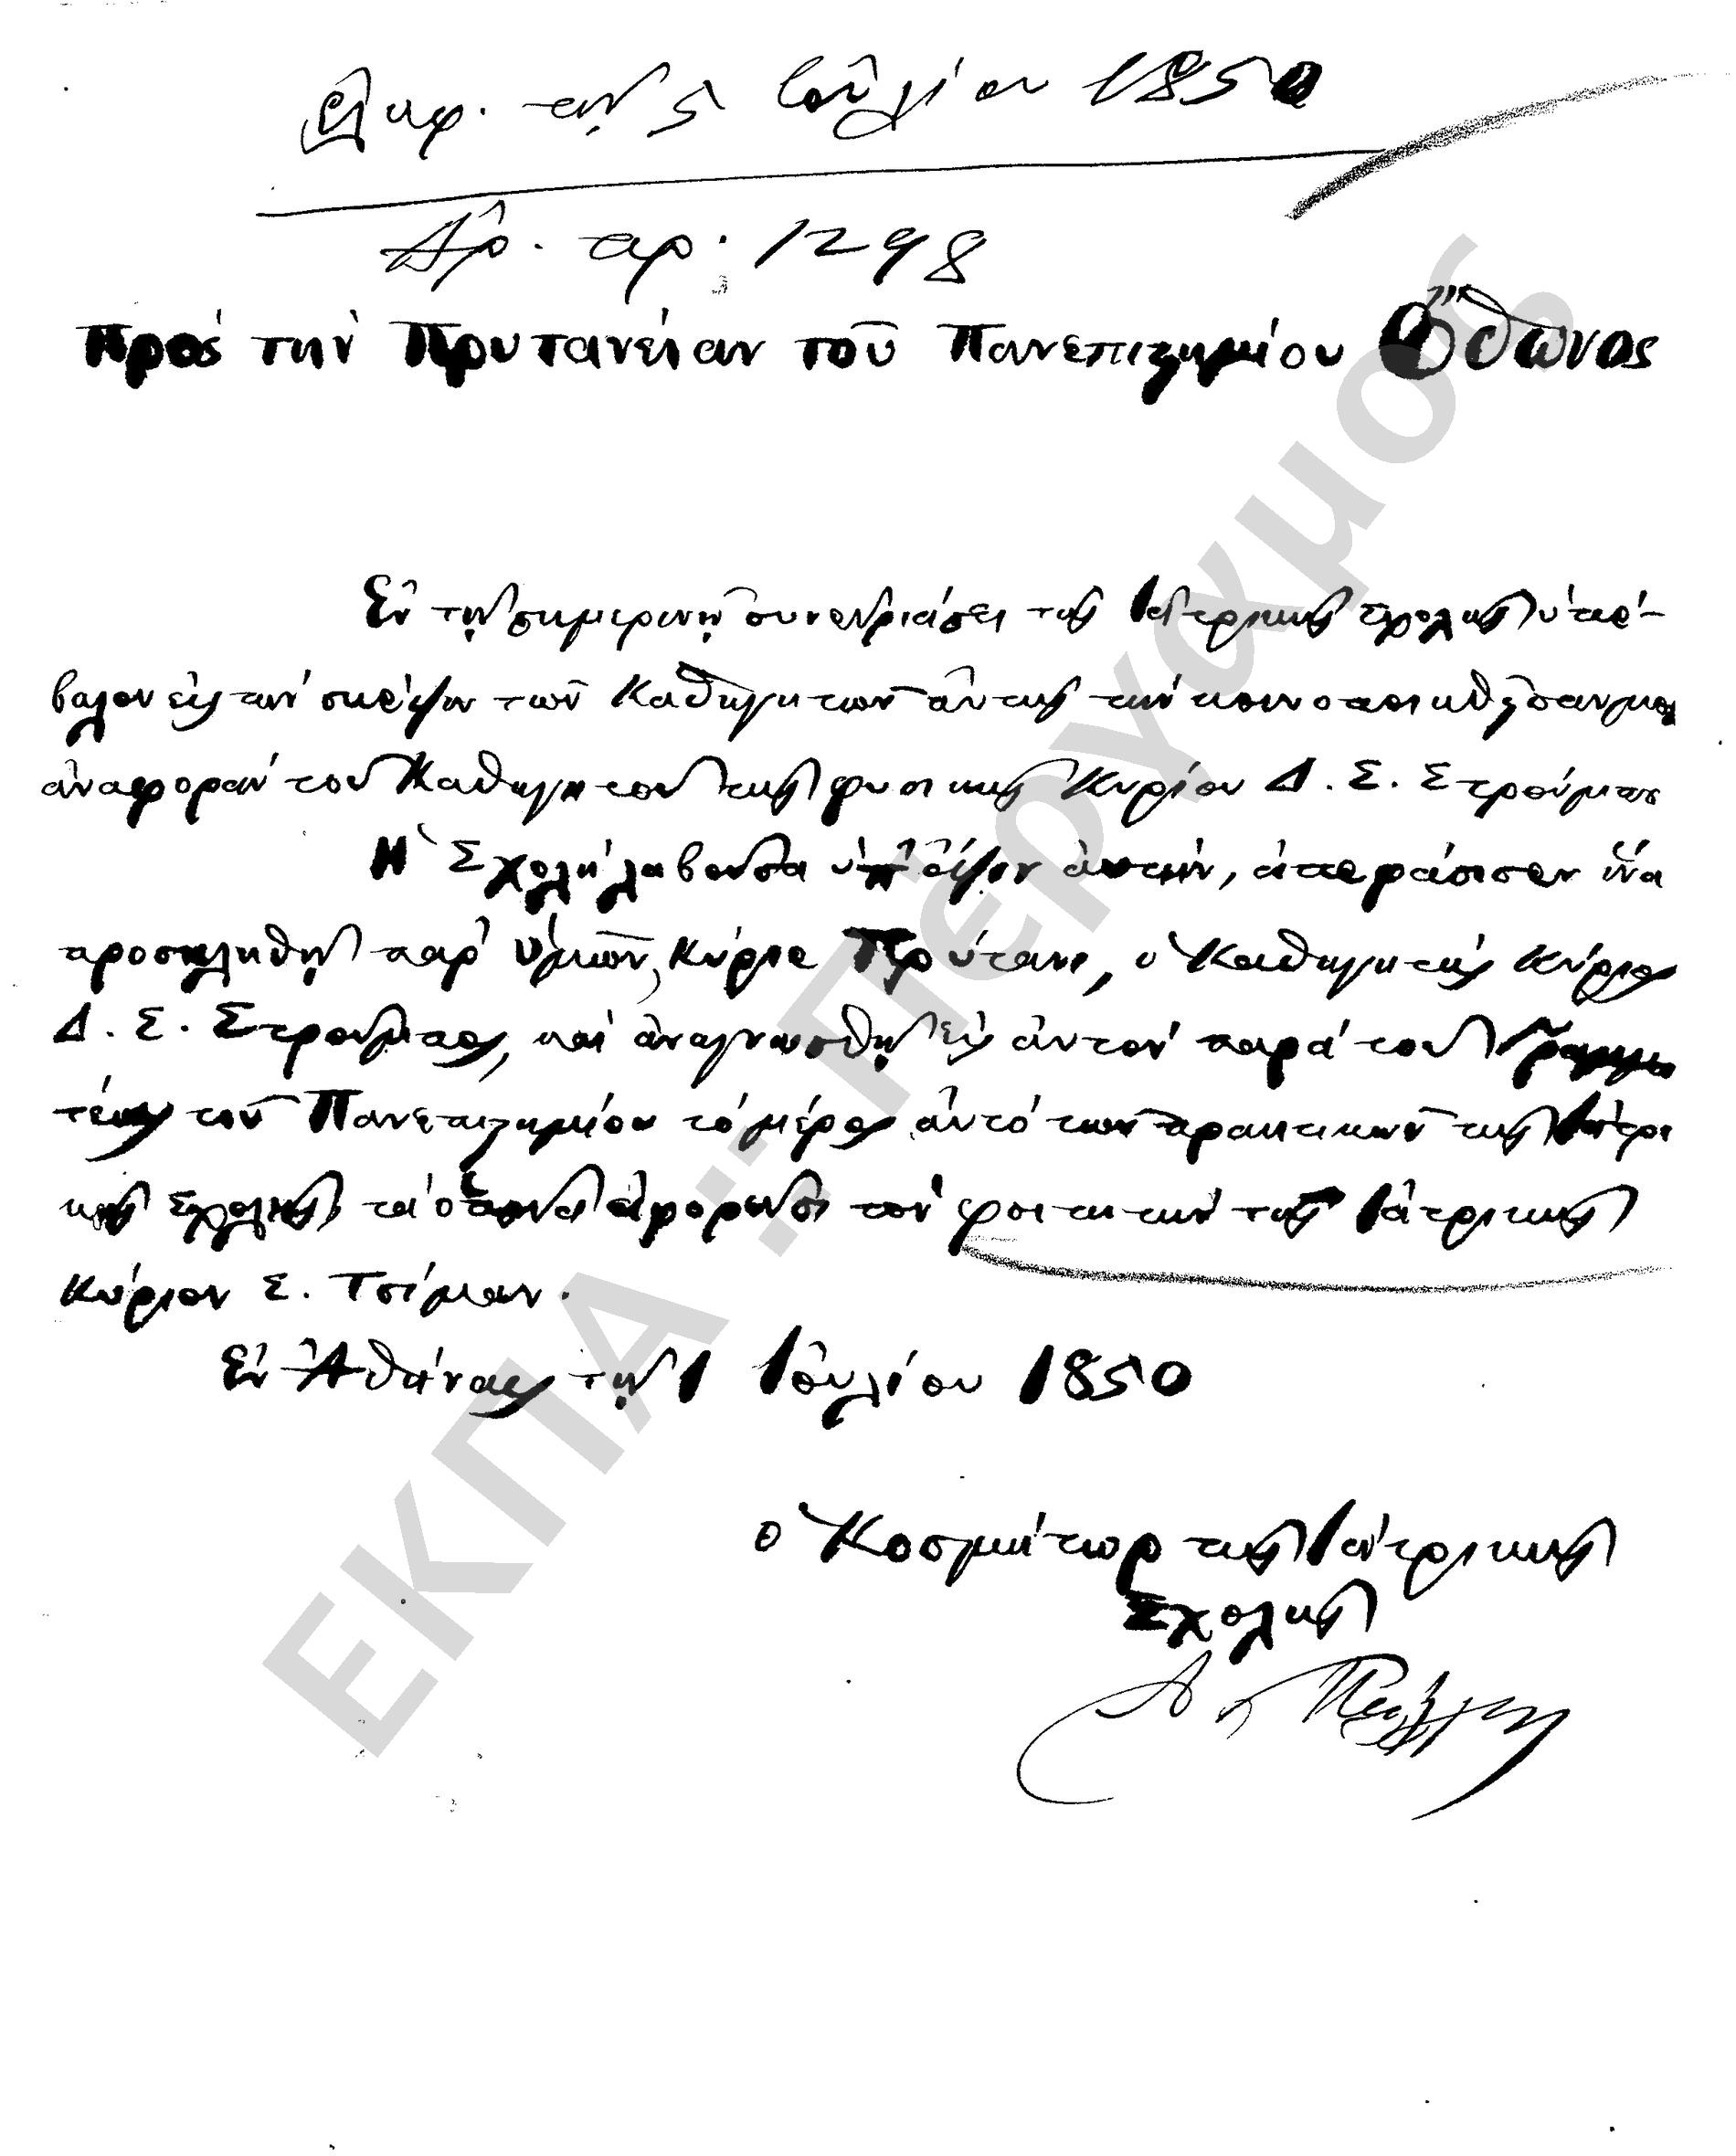 Ἐλήφ. τῇ 5 Ἰουλίου 1850
Ἀρ. πρ. 1298
Πρὸς τὴν Πρυτανείαν τοῦ Πανεπιστημίου Ὄθωνος
Ἐν τῇ σημερινῇ συνεδριάσει τῆς Ἰατρικῆς Σχολῆς ὑπέ-
βαλον εἰς τὴν σκέψιν τῶν Καθηγητῶν αὐτῆς τὴν κοινοποιηθεῖσαν μοι
ἀναφορὰν τοῦ Καθηγητοῦ τῆς φυσικῆς Κυρίου Δ. Σ. Στρούμπου
Ἡ Σχολὴ λαβοῦσα ὑπ' ὄψιν αὐτὴν, ἀπεφάσισεν ἵνα
προσκληθῇ παρ' ὑμῶν, Κύριε Πρύτανι, ὁ Καθηγητὴς Κύριος
Δ. Σ. Στροῦμπος, καὶ ἀναγνωσθῇ εἰς αὐτὸν παρὰ τοῦ Γραμμα
τέως τοῦ Πανεπιστημίου τὸ μέρος αὐτὸ τῶν πρακτικῶν τῆς Ἰατρι
κῆς Σχολῆς, τὰ ὁποῖα ἀφορῶσι τὸν φοιτητὴν τῆς Ἰατρικῆς
Κύριον Σ. Τσίμαν.
Ἐν Ἀθήναις τῇ 1 Ἰουλίου 1850
Ὁ Κοσμήτωρ τῆς Ἰατρικῆς
Σχολῆς
ΕΚΠΑ :: Πέργαμος